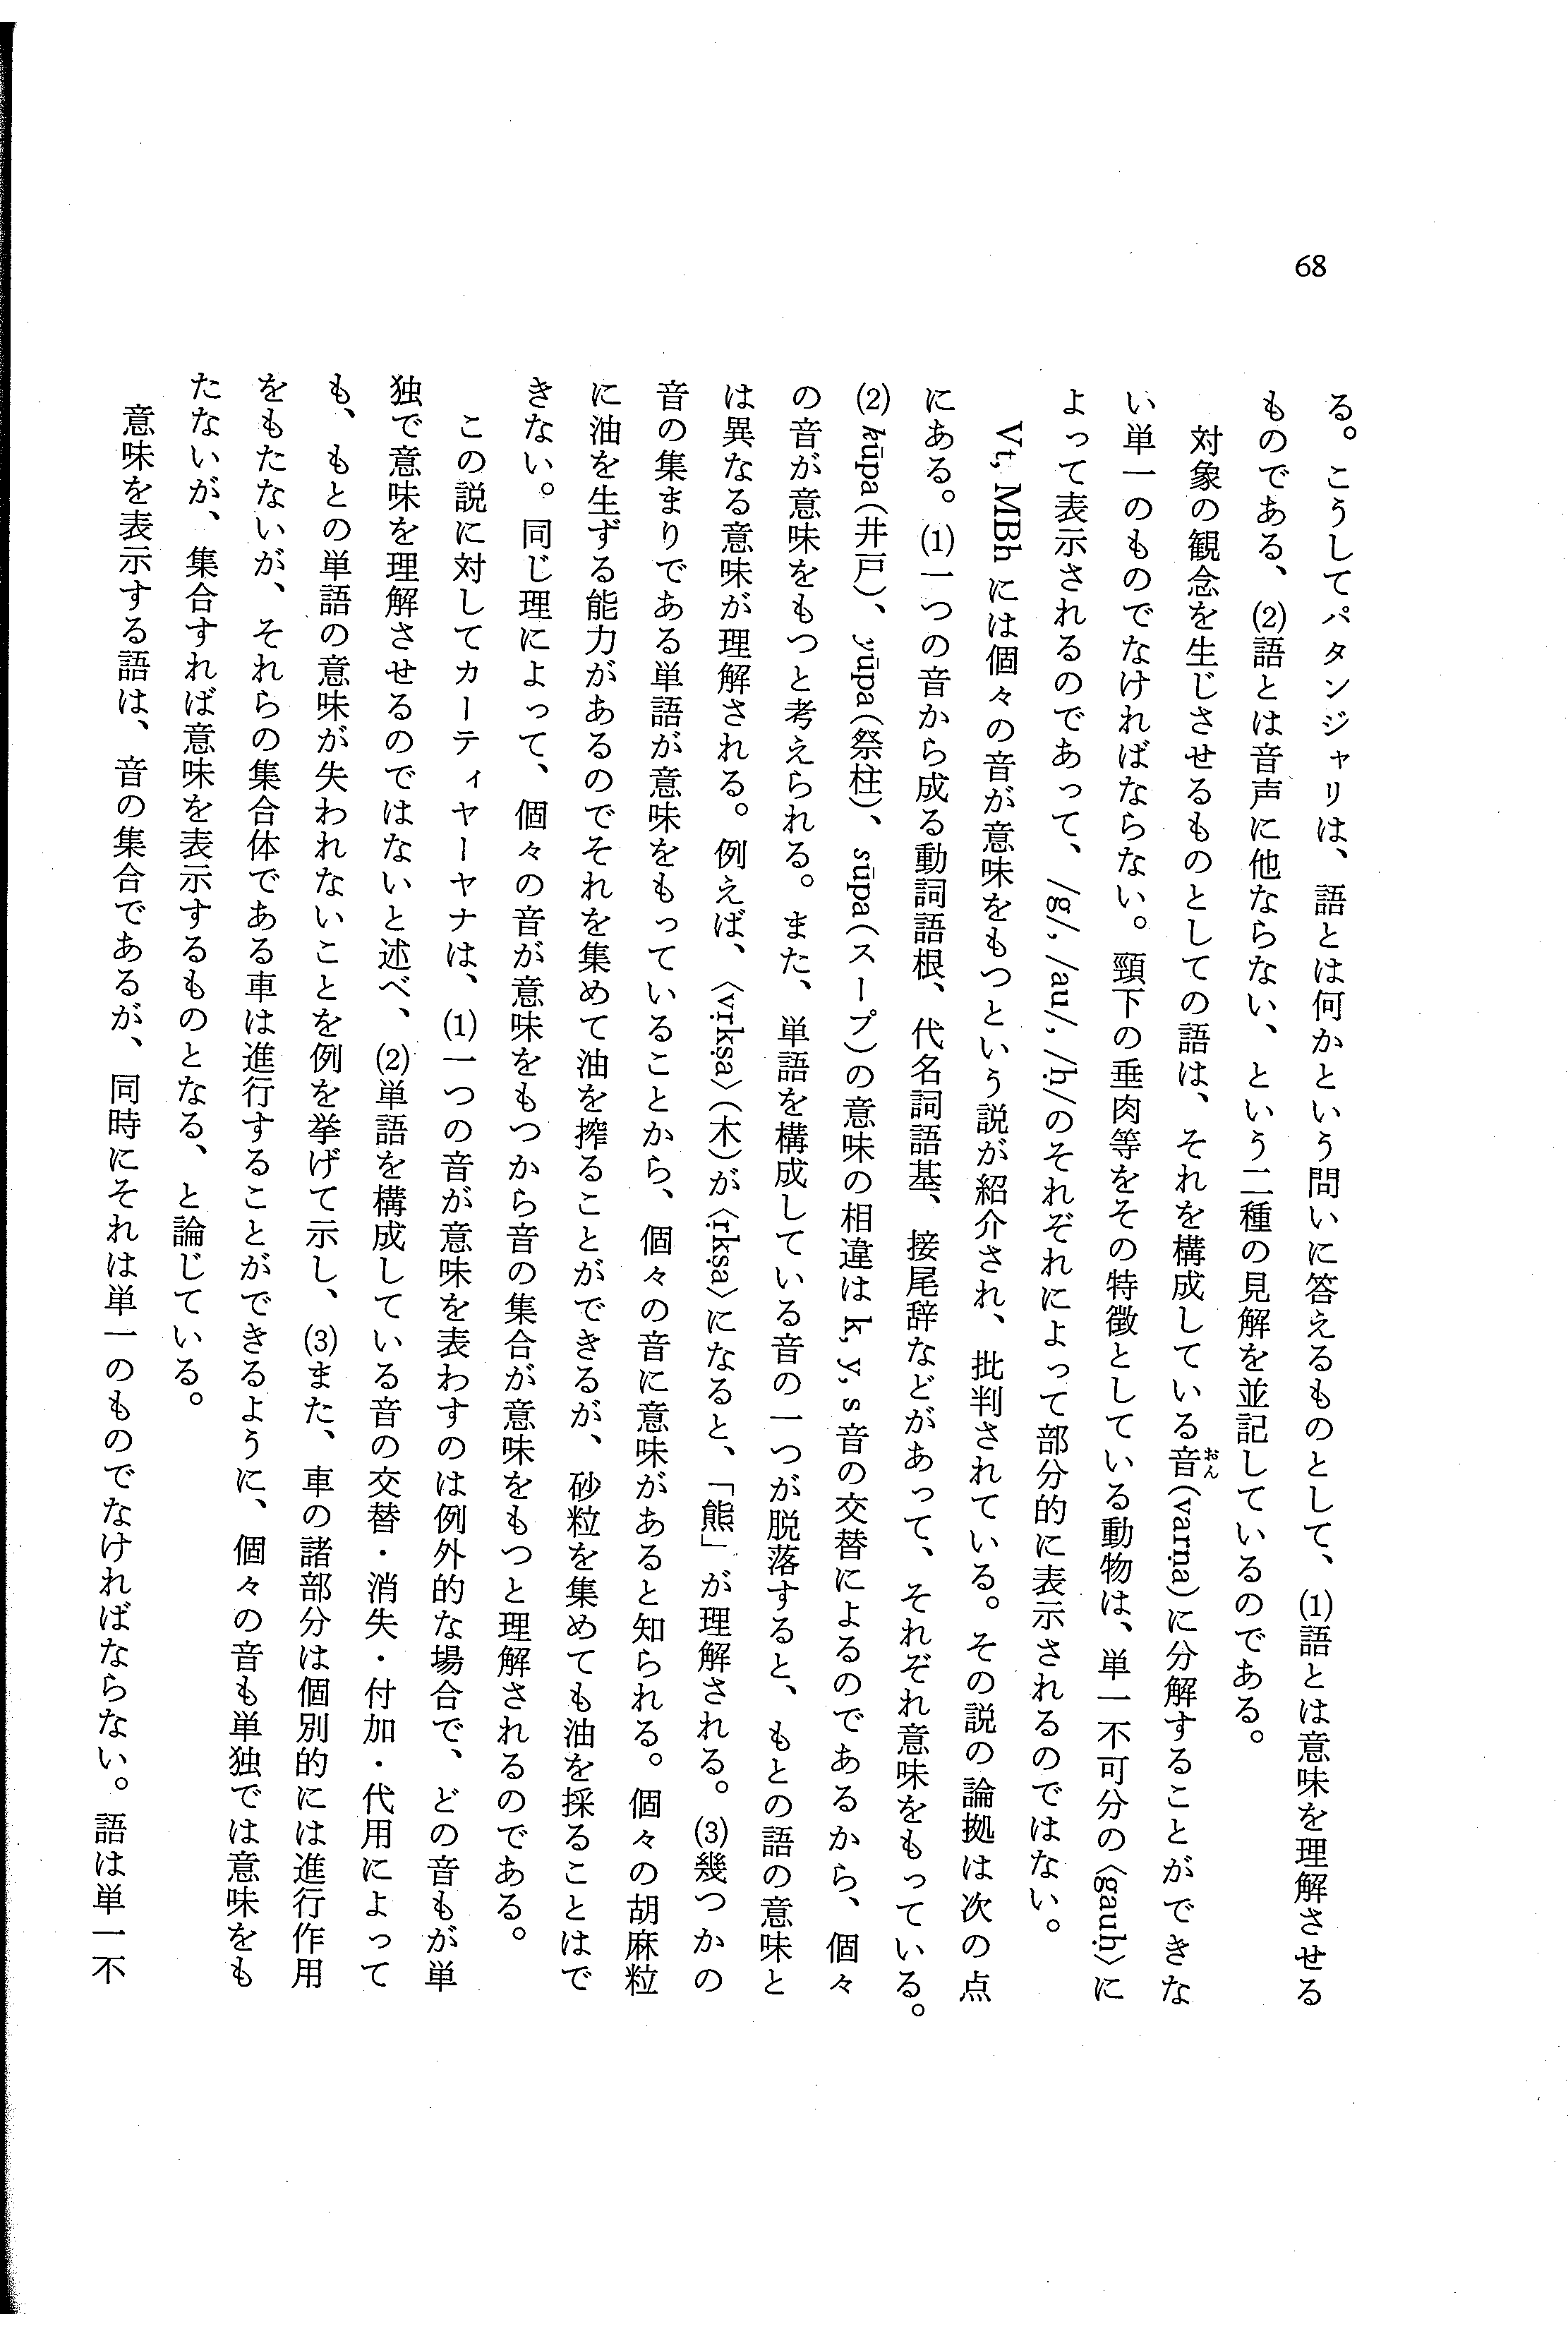 68
る。こうしてパタンジャリは、語とは何かという問いに答えるものとして、(1)語とは意味を理解させる
ものである、(2)語とは音声に他ならない、という二種の見解を並記しているのである。
対象の観念を生じさせるものとしての語は、それを構成している音(varṇa)に分解することができな
おん
い単一のものでなければならない。頸下の垂肉等をその特徴としている動物は、単一不可分の〈gauḥ〉に
よって表示されるのであって、/g/, /au/, /ḥ/のそれぞれによって部分的に表示されるのではない。
Vt, MBh には個々の音が意味をもつという説が紹介され、批判されている。その説の論拠は次の点
にある。(1)一つの音から成る動詞語根、代名詞語基、接尾辞などがあって、それぞれ意味をもっている。
(2) kūpa(井戸)、yūpa(祭柱)、sūpa(スープ)の意味の相違は k, y, s 音の交替によるのであるから、個々
の音が意味をもつと考えられる。また、単語を構成している音の一つが脱落すると、もとの語の意味と
は異なる意味が理解される。例えば、〈vṛkṣa〉(木)が〈ṛkṣa〉になると、「熊」が理解される。(3)幾つかの
音の集まりである単語が意味をもっていることから、個々の音に意味があると知られる。個々の胡麻粒
に油を生ずる能力があるのでそれを集めて油を搾ることができるが、砂粒を集めても油を採ることはで
きない。同じ理によって、個々の音が意味をもつから音の集合が意味をもつと理解されるのである。
この説に対してカーティヤーヤナは、(1)一つの音が意味を表わすのは例外的な場合で、どの音もが単
独で意味を理解させるのではないと述べ、(2)単語を構成している音の交替・消失・付加・代用によって
も、もとの単語の意味が失われないことを例を挙げて示し、(3)また、車の諸部分は個別的には進行作用
をもたないが、それらの集合体である車は進行することができるように、個々の音も単独では意味をも
たないが、集合すれば意味を表示するものとなる、と論じている。
意味を表示する語は、音の集合であるが、同時にそれは単一のものでなければならない。語は単一不